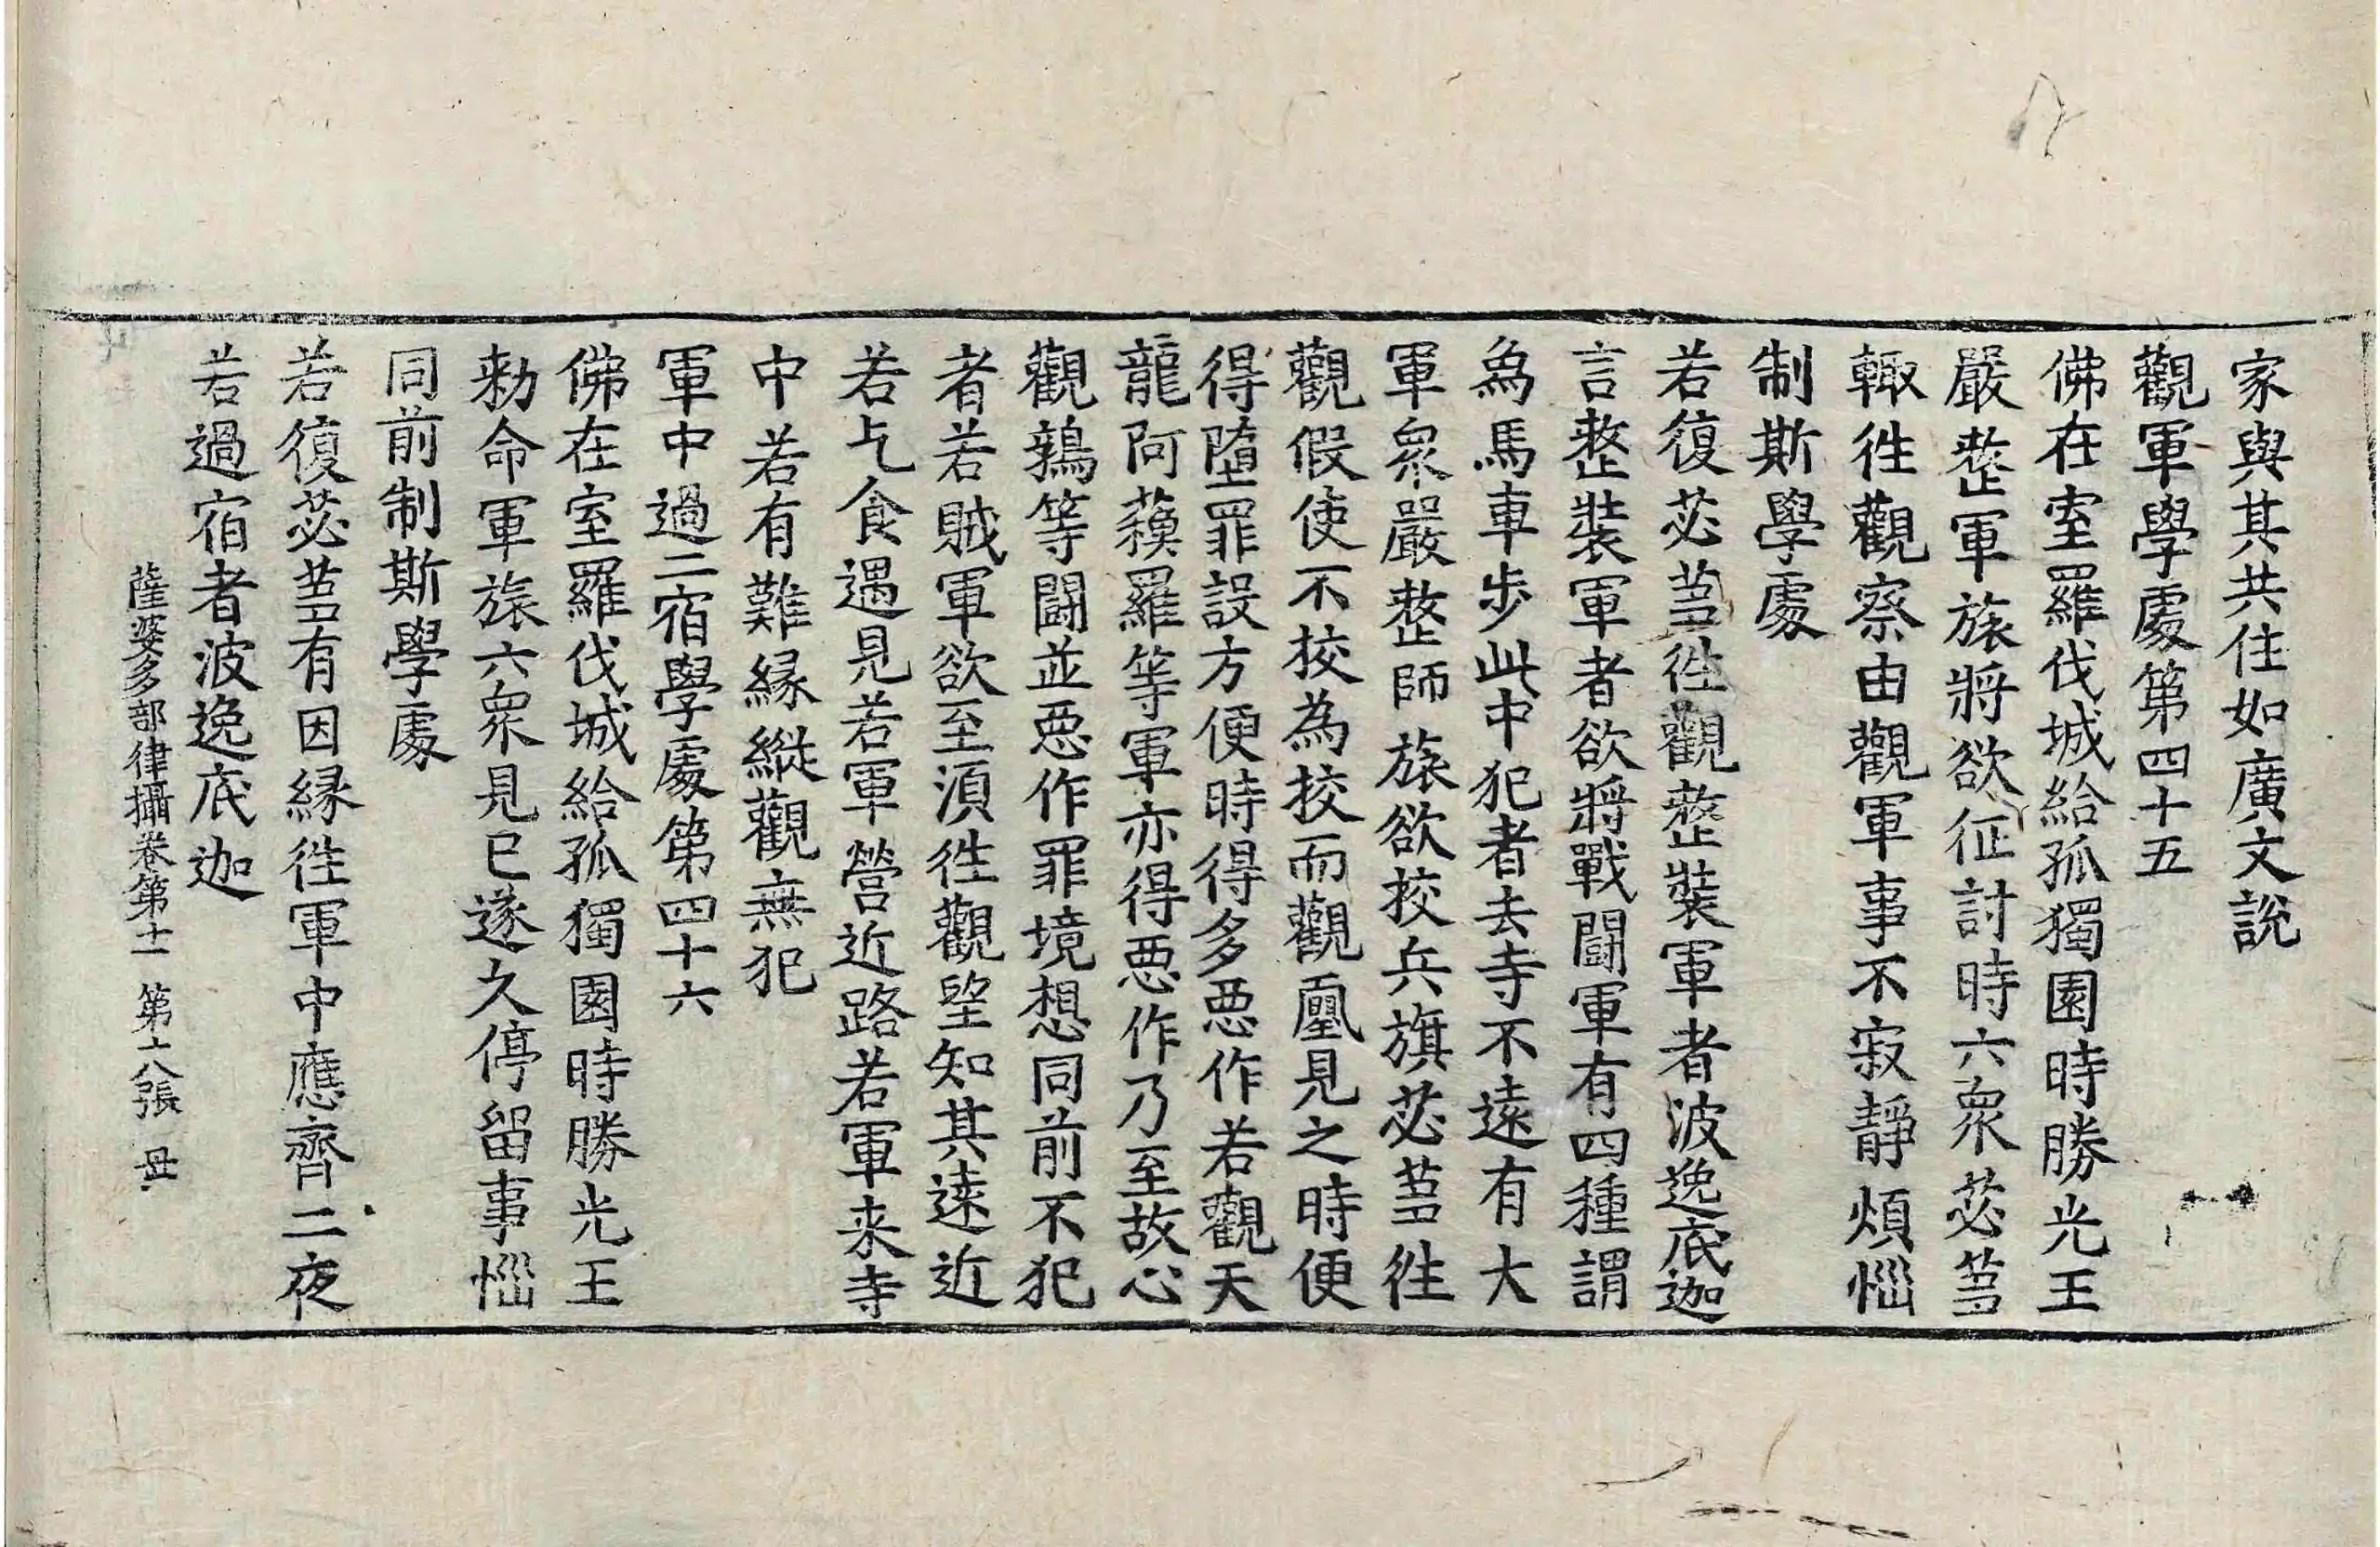 家與其共住如廣文說
觀軍學處第四十五
佛在室羅伐城給孤獨園時勝光王
嚴整軍旅將欲征討時六衆苾蒭
輙徃觀察由觀軍事不寂靜煩惱
制斯學處
若復苾蒭徃觀整裝軍者波逸底迦
言整裝軍者欲將戰鬪軍有四種謂
爲馬車步此中犯者去寺不遠有大
軍衆嚴整師旅欲挍兵旗苾蒭徃
觀假使不挍為挍而觀覩見之時便
得墮罪設方便時得多惡作若觀天
龍阿蘓羅等軍亦得惡作乃至故心
觀鶉等鬪並惡作罪境想同前不犯
者若賊軍欲至湏徃觀望知其遠近
若乞食遇見若軍營近路若軍来寺
中若有難縁縱觀無犯
軍中過二宿學處第四十六
佛在室羅伐城給孤獨園時勝光王
勑命軍旅六衆見已遂久停留事惱
同前制斯學處
若復苾蒭有因縁徃軍中應齊二夜
若過宿者波逸底迦
薩婆多部律攝卷第十一 第十八張 母